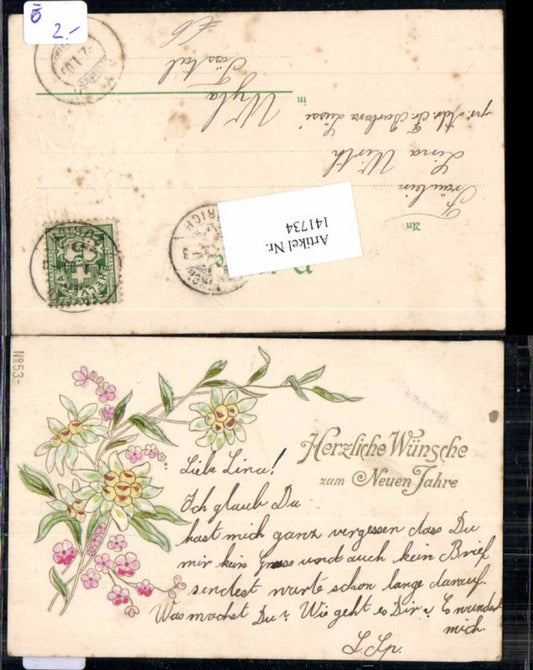 ö
2.-
Fräulein
Lina Wirth
pr. Adr. Fr. Barbara Lüssi
in Wyla
Tösstal
An
Artikel Nr.
141734
No 53-
Herzliche Wünsche
zum Neuen Jahre
Liebe Lina!
Ich glaub Du
hast mich ganz vergessen dass Du
mir kein Gruss und auch kein Brief
sendest warte schon lange darauf.
Was machst Du? Wie geht es Dir? E wundert
mich.
L. Sp.